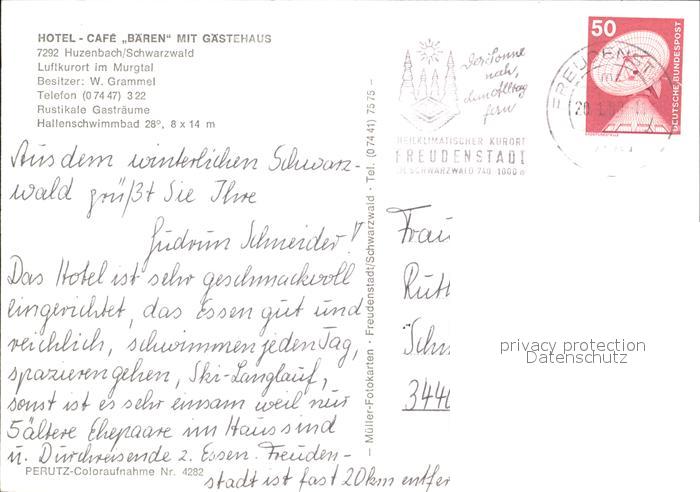 HOTEL - CAFÉ „BÄREN" MIT GÄSTEHAUS
7292 Huzenbach/Schwarzwald
Luftkurort im Murgtal
Besitzer: W. Grammel
Telefon (07447) 322
Rustikale Gasträume
Hallenschwimmbad 28°, 8 x 14 m
Aus dem winterlichen Schwarz-
wald grüßt Sie Ihre
Gudrun Schneider!
Das Hotel ist sehr geschmackvoll
eingerichtet, das Essen gut und
reichlich, schwimmen jeden Tag,
spazierengehen, Ski-Langlauf,
sonst ist es sehr einsam weil nur
5 ältere Ehepaare im Haus sind
u. Durchreisende z. Essen. Freuden-
stadt ist fast 20 km entfer
PERUTZ-Coloraufnahme Nr. 4282
— Müller-Fotokarten · Freudenstadt/Schwarzwald · Tel. (07441) 7575 —
Der Sonne
nah,
dem Alltag
fern
HEILKLIMATISCHER KURORT
FREUDENSTADT
IM SCHWARZWALD 740-1000 m
FREUDENST
50
DEUTSCHE BUNDESPOST
Frau
Ruth
Schn
344
privacy protection
Datenschutz